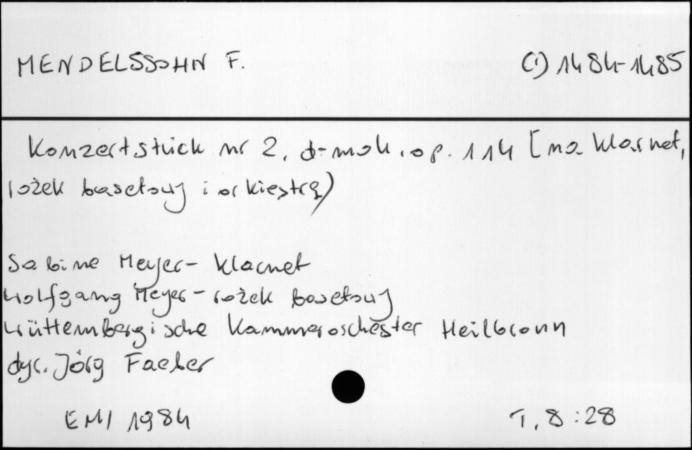 MENDELSSOHN F. (i) 1484-1485
Konzertstück nr 2, d-moll, op. 114 [na klarnet,
rożek basetowy i orkiestrę)
Sabine Meyer - klarnet
Wolfgang Meyer - rożek basetowy
Württembergische Kammerorchester Heilbronn
dyr. Jörg Faerber
EMI 1984 T. 8:28